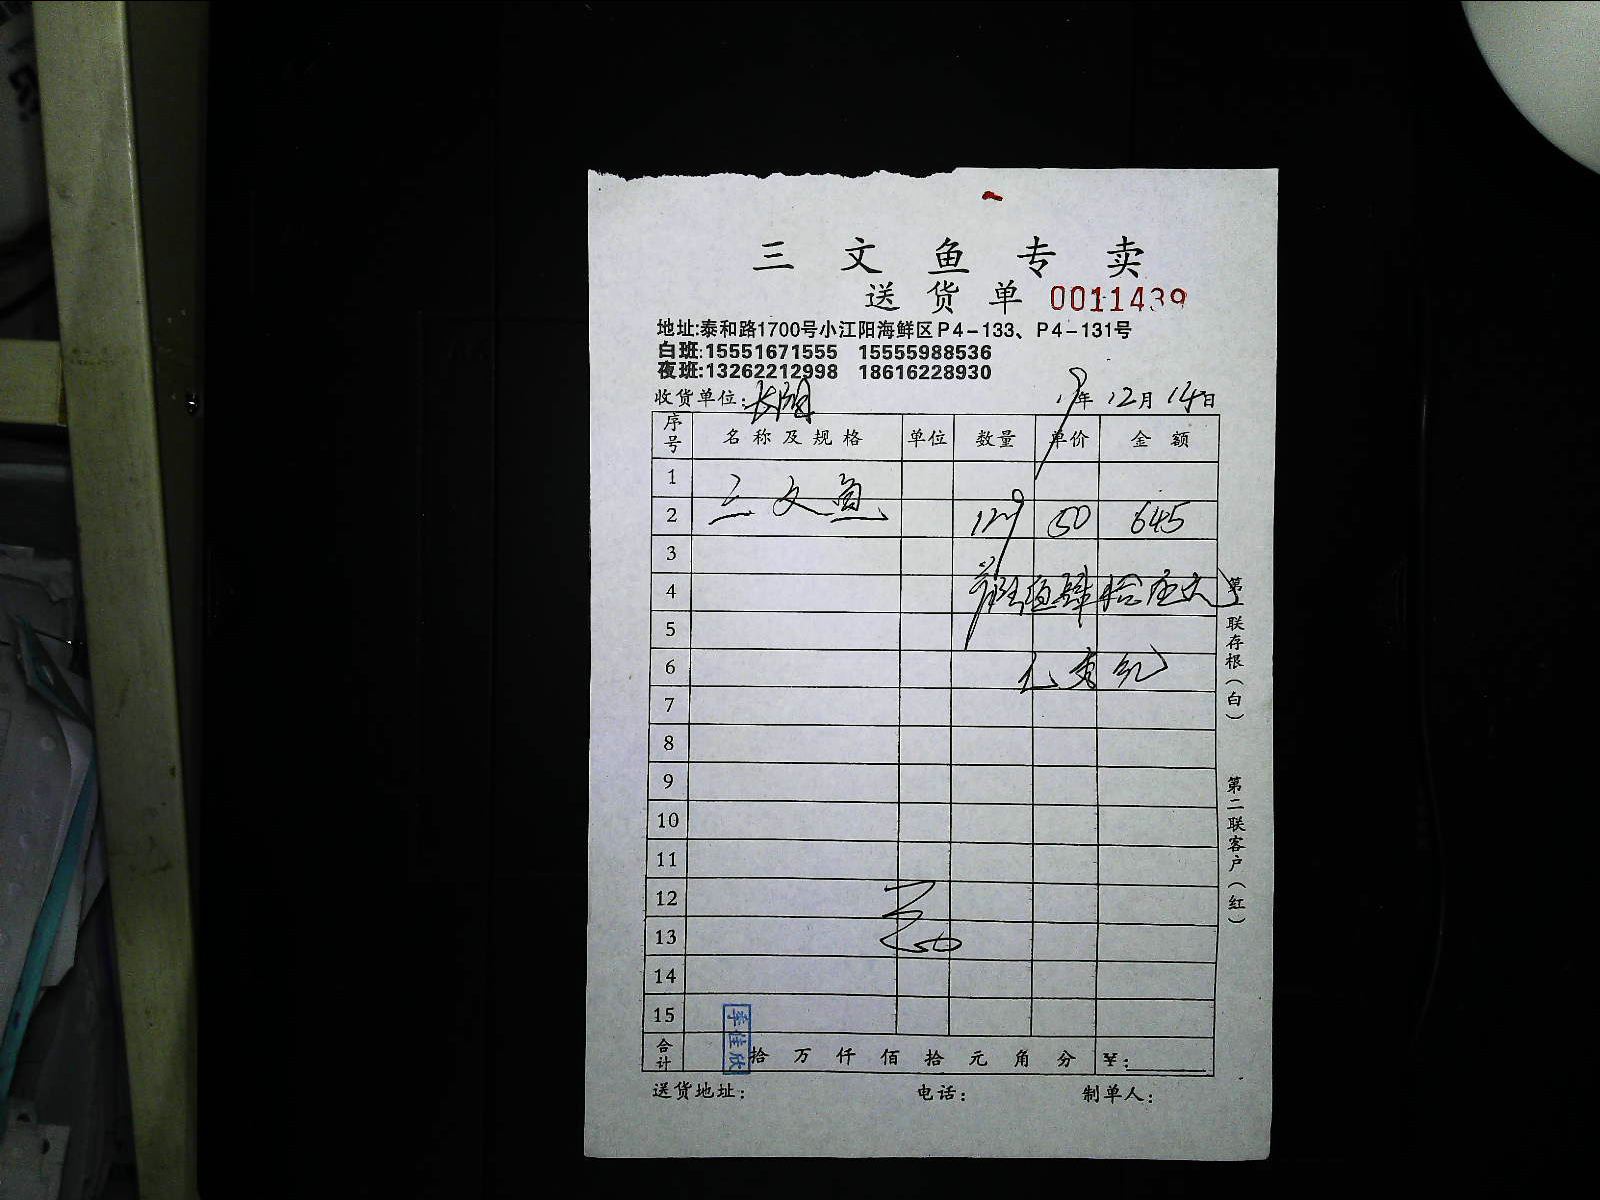 三文鱼专卖
送货单 0011439
地址:泰和路1700号小江阳海鲜区P4-133、P4-131号
白班:15551671555 15555988536
夜班:13262212998 18616228930
收货单位: 年 12月 14日
序号 名称及规格 单位 数量 单价 金额
1
2 三文鱼 129 50 645
3
4 陆佰肆拾伍元
5
6
7
8
9
10
11
12
13
14
15
季佳欣
合计 拾 万 仟 佰 拾 元 角 分 ¥:
送货地址: 电话: 制单人:
第一联存根(白)
第二联客户(红)